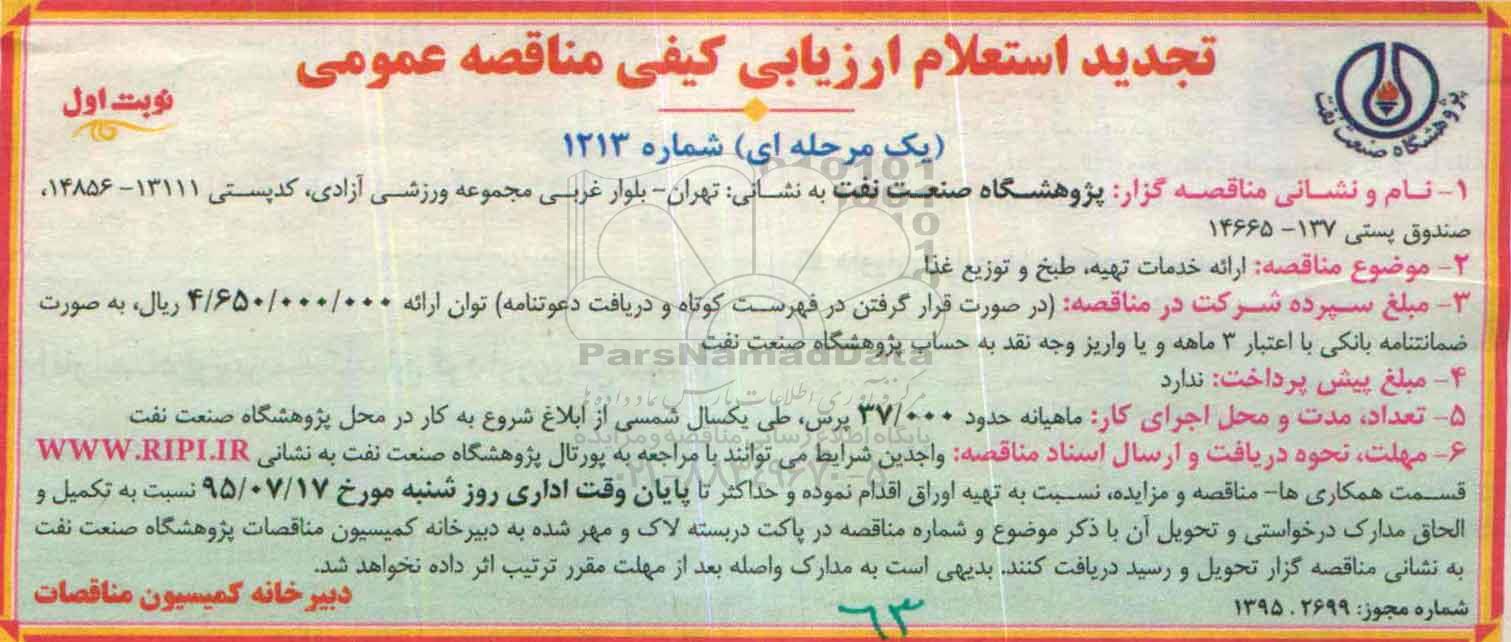 تجدید استعلام ارزیابی کیفی مناقصه عمومی
پژوهشگاه صنعت نفت
نوبت اول
(یک مرحله ای) شماره ۱۲۱۳
۱- نام و نشانی مناقصه گزار: پژوهشگاه صنعت نفت به نشانی: تهران- بلوار غربی مجموعه ورزشی آزادی، کدپستی ۱۳۱۱۱- ۱۴۸۵۶،
صندوق پستی ۱۳۷- ۱۴۶۶۵
۲- موضوع مناقصه: ارائه خدمات تهیه، طبخ و توزیع غذا
۳- مبلغ سپرده شرکت در مناقصه: (در صورت قرار گرفتن در فهرست کوتاه و دریافت دعوتنامه) توان ارائه ۴/۶۵۰/۰۰۰/۰۰۰ ریال، به صورت
ضمانتنامه بانکی با اعتبار ۳ ماهه و یا واریز وجه نقد به حساب پژوهشگاه صنعت نفت
ParsNamadData
۴- مبلغ پیش پرداخت: ندارد
مرکز فرآوری اطلاعات پارس نماد داده ها
۵- تعداد، مدت و محل اجرای کار: ماهیانه حدود ۳۷/۰۰۰ پرس، طی یکسال شمسی از ابلاغ شروع به کار در محل پژوهشگاه صنعت نفت
پایگاه اطلاع رسانی مناقصه و مزایده
۶- مهلت، نحوه دریافت و ارسال اسناد مناقصه: واجدین شرایط می توانند با مراجعه به پورتال پژوهشگاه صنعت نفت به نشانی WWW.RIPI.IR
۰۲۱-۸۸۳۴۹۶۷۰-۵
قسمت همکاری ها- مناقصه و مزایده، نسبت به تهیه اوراق اقدام نموده و حداکثر تا پایان وقت اداری روز شنبه مورخ ۹۵/۰۷/۱۷ نسبت به تکمیل و
الحاق مدارک درخواستی و تحویل آن با ذکر موضوع و شماره مناقصه در پاکت دربسته لاک و مهر شده به دبیرخانه کمیسیون مناقصات پژوهشگاه صنعت نفت
به نشانی مناقصه گزار تحویل و رسید دریافت کنند. بدیهی است به مدارک واصله بعد از مهلت مقرر ترتیب اثر داده نخواهد شد.
دبیرخانه کمیسیون مناقصات
شماره مجوز: ۱۳۹۵.۲۶۹۹
۶۳